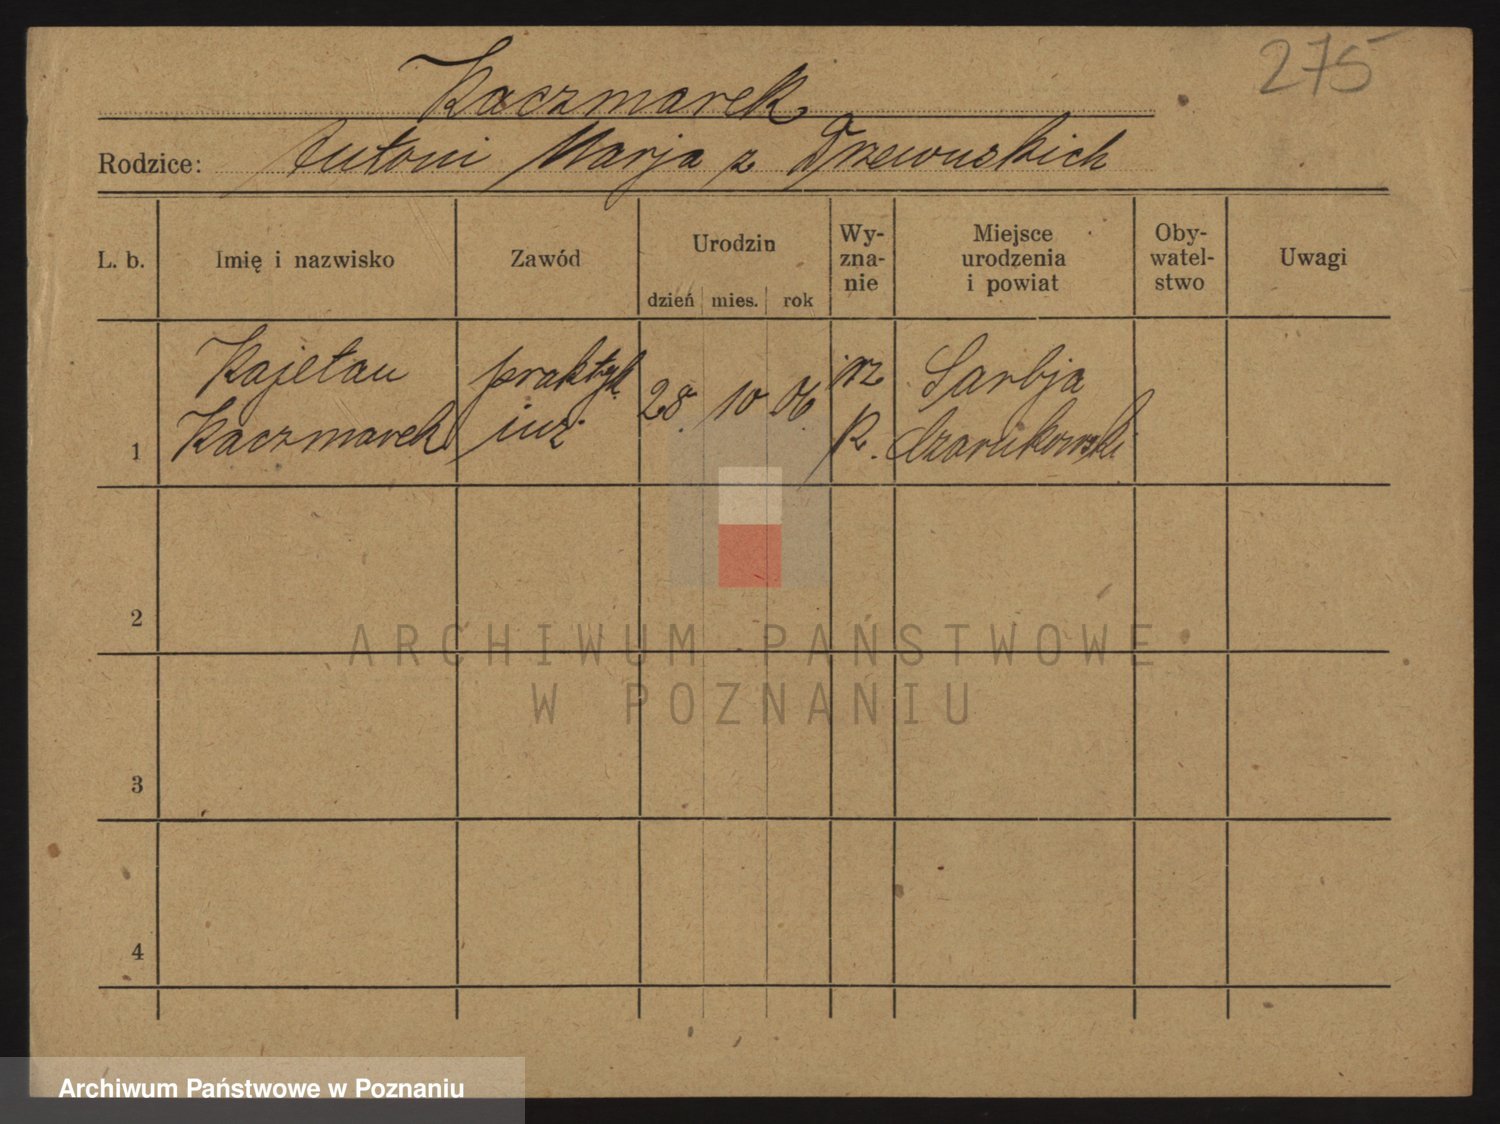 275
Kaczmarek
Rodzice: Antoni Marja z Drzewuskich
L. b. Imię i nazwisko Zawód Urodzin dzień mies. rok Wy-zna-nie Miejsce urodzenia i powiat Oby-watel-stwo Uwagi
Kajetan praktyk. 28. 10 06. rz Sarbja
1 Kaczmarek inż. k. Czarnkowski
2
ARCHIWUM PAŃSTWOWE
W POZNANIU
3
4
Archiwum Państwowe w Poznaniu